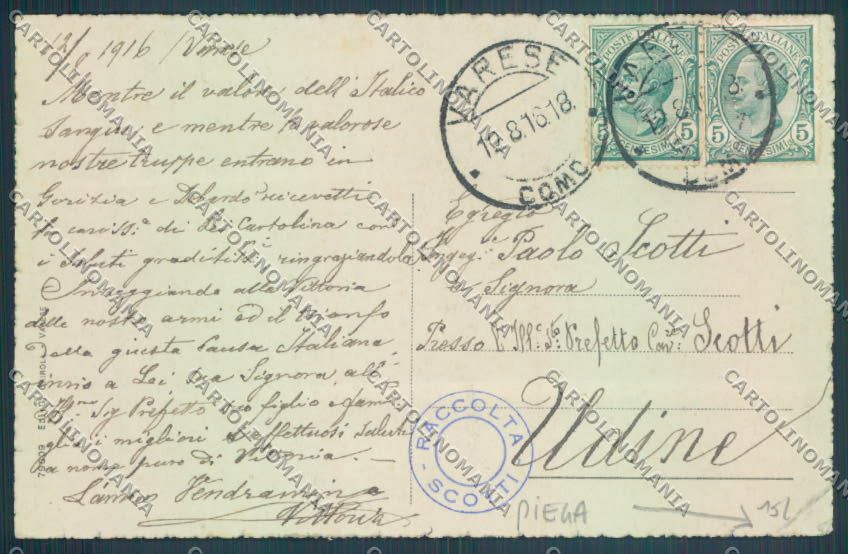 12/8 1916 Varese
Mentre il valore dell'Italico
Sangue, e mentre le valorose
nostre truppe entrano in
Gorizia e Doberdò ricevetti
la cariss.ª di Lei Cartolina con
i Saluti graditissi. ringraziandola
Inneggiando alla Vittoria
delle nostre armi ed il trionfo
della giusta Causa Italiana,
invio a Lei sua Signora, all'
Ill.mo Sig Prefetto figlio e fami
glia i migliori ed affettuosi saluti
a nome pure di Vittoria.
Vendramin
Vittoria
VARESE
COMO
POSTE ITALIANE
5 CENTESIMI 5
POSTE ITALIANE
5 CENTESIMI 5
Egregio
Ingeg.re Paolo Scotti
e Signora
Presso l'Ill.º Sº Prefetto Cav: Scotti
Udine
RACCOLTA
SCONTI
PIEGA
15/
CARTOLINOMANIA